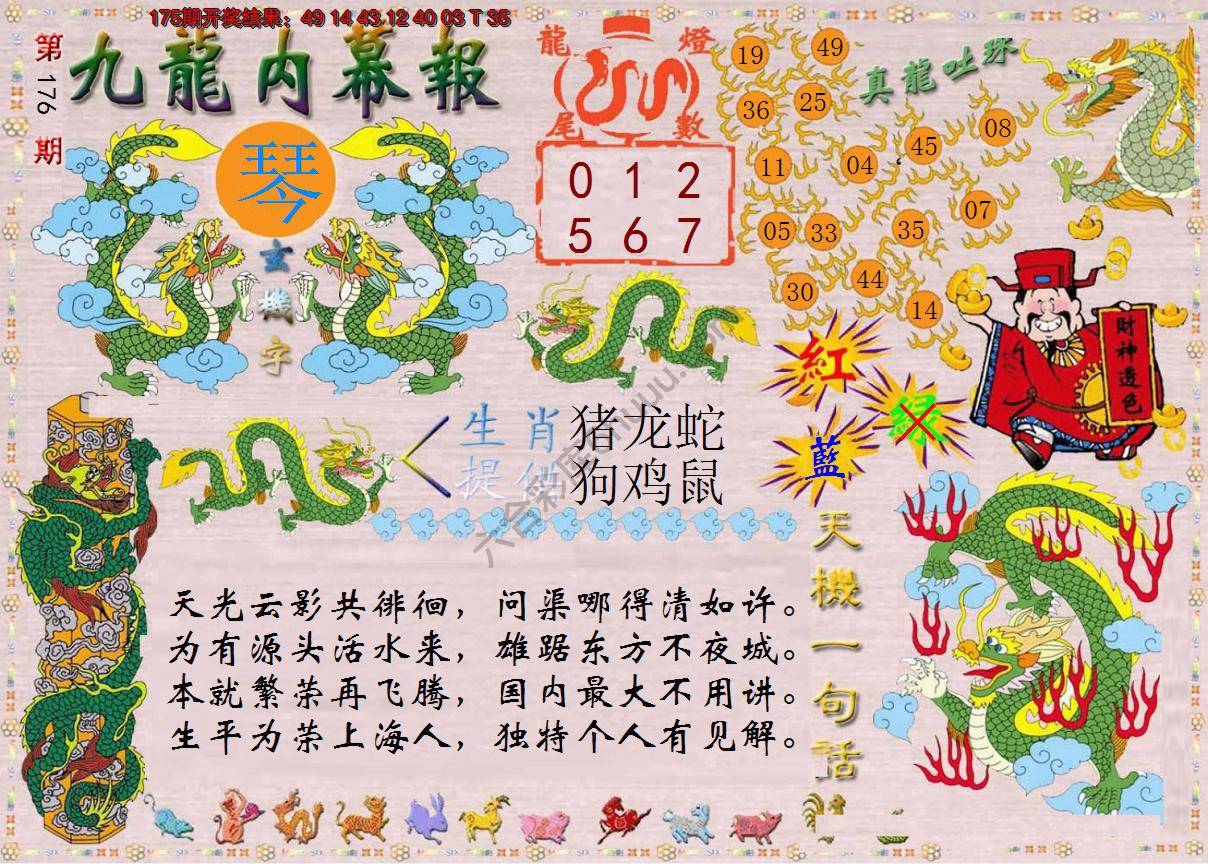 175期开奖结果：49 14 43 12 40 03 T 35
第176期
九龍内幕報
琴
玄機字
龍燈
尾數
0 1 2
5 6 7
真龍吐珠
19
49
36
25
45
08
11
04
05
33
35
07
30
44
14
財神透色
紅
綠
藍
生肖
提供
猪龙蛇
狗鸡鼠
天機一句話
天光云影共徘徊，问渠哪得清如许。
为有源头活水来，雄踞东方不夜城。
本就繁荣再飞腾，国内最大不用讲。
生平为荣上海人，独特个人有见解。